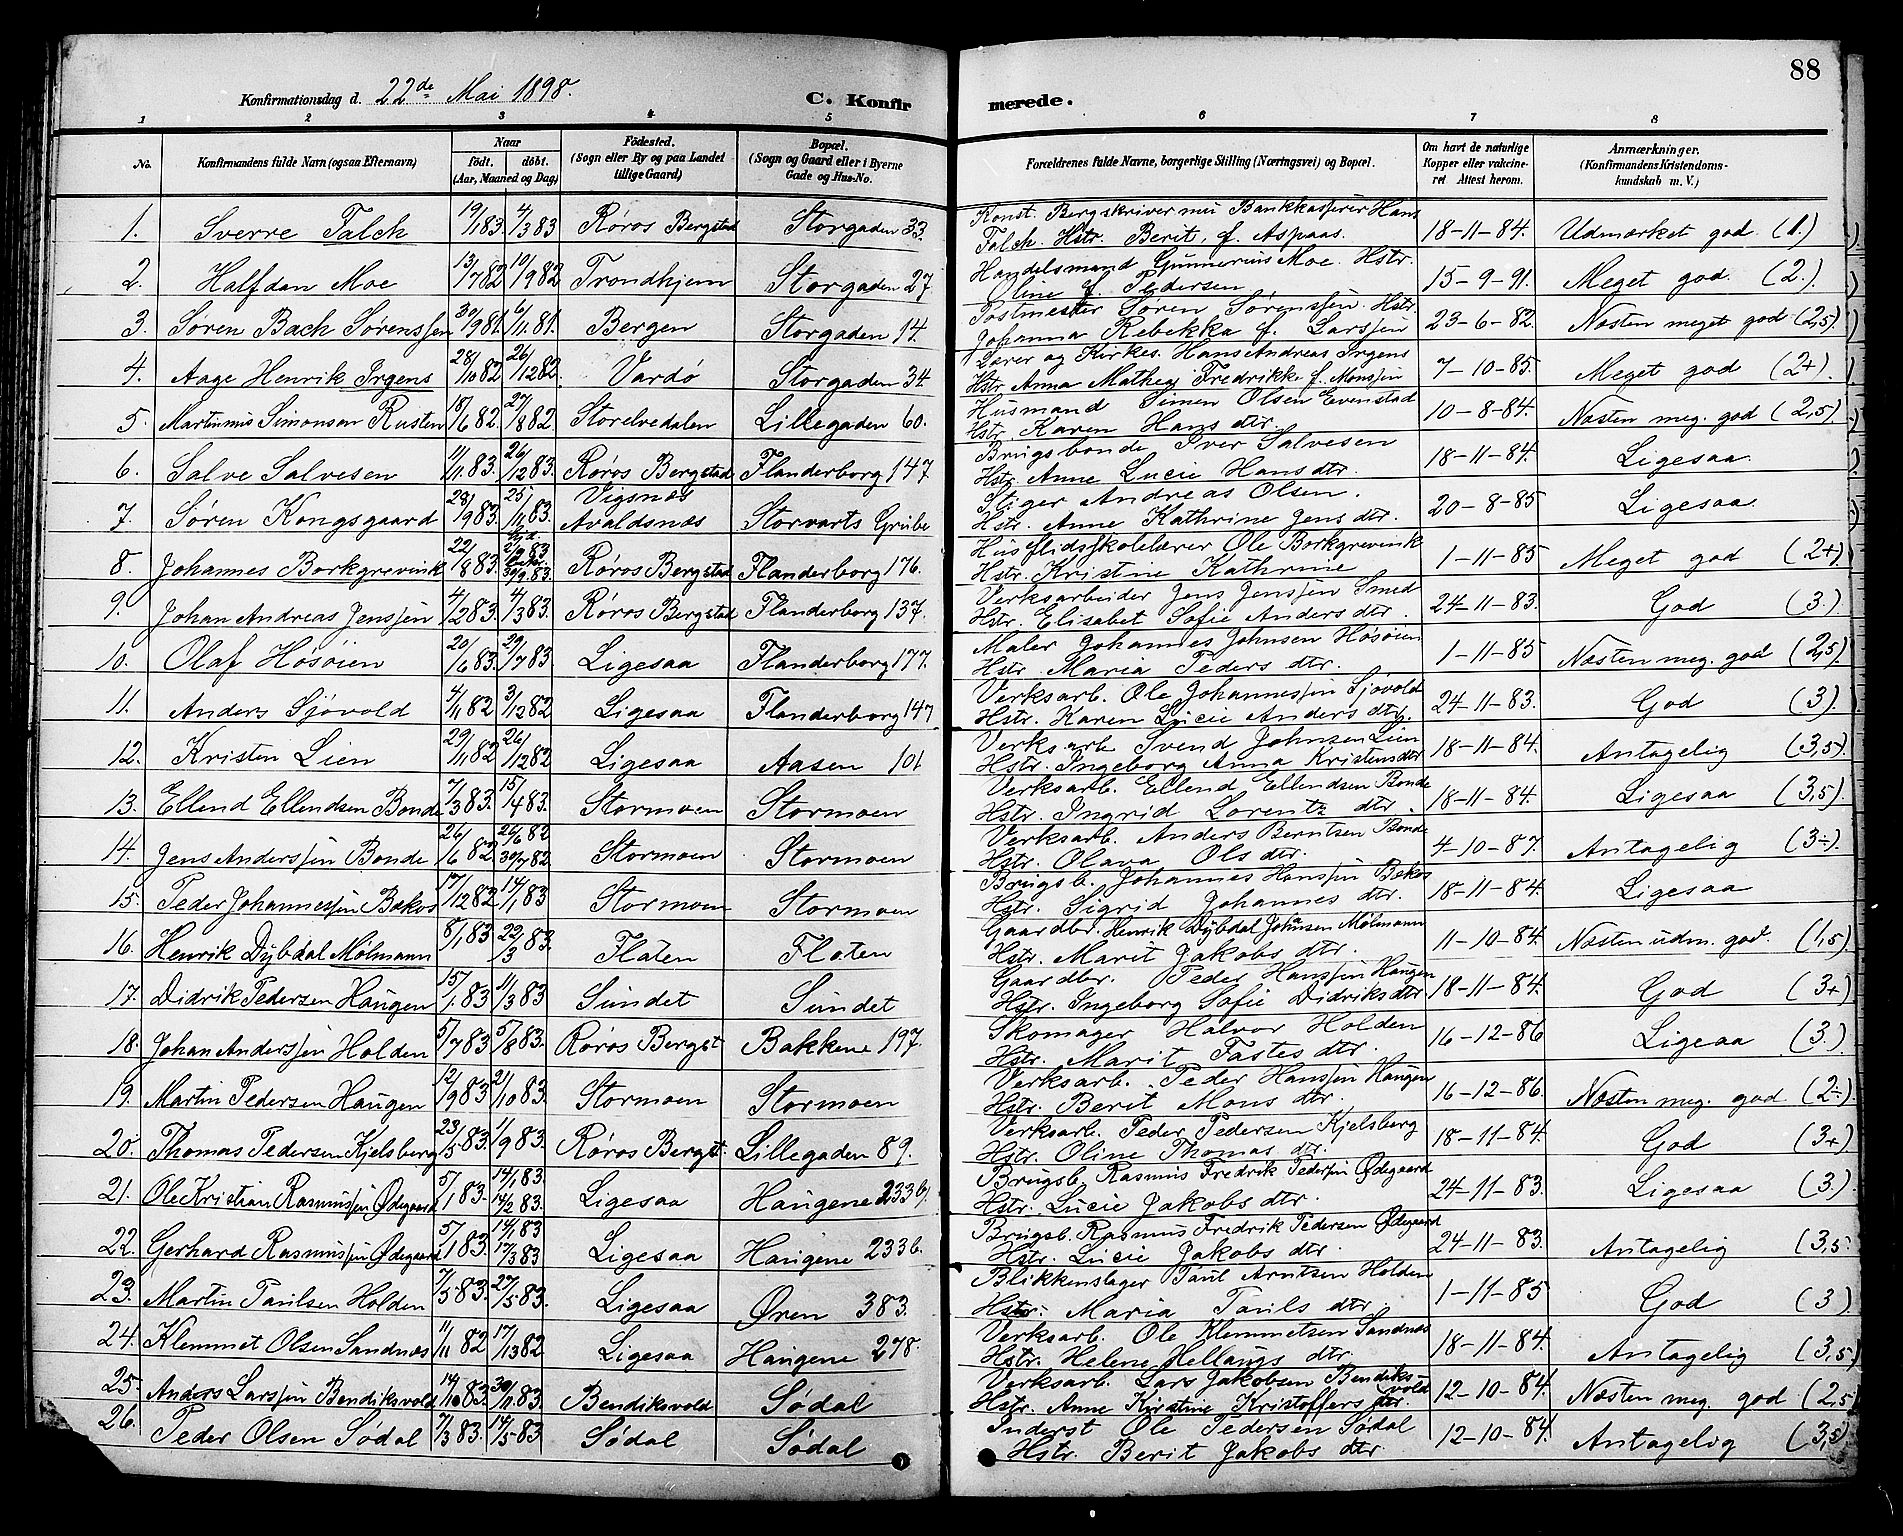 88
Konfirmationsdag d. 22de Mai 1898.
C. Konfirmerede.
1 2 3 4 5 6 7 8
No. Konfirmandens fulde Navn (ogsaa Efternavn) Naar födt. döbt. (Aar, Maaned og Dag) Födested. (Sogn eller By og paa Landet tillige Gaard) Bopæl. (Sogn og Gaard eller i Byerne Gade og Hus-No. Forældrenes fulde Navne, borgerlige Stilling (Næringsvei) og Bopæl. Om havt de naturlige Kopper eller vakcineret Attest herom. Anmærkninger. (Konfirmandens Kristendomskundskab m. V.)
1. Sverre Falck 19/1 83. 4/3 83 Røros Bergstad Storgaden 33. Konst. Bergskriver Bankkasserer Hans
Falck. Hstr. Berit, f. Aspaas. 18-11-84. Udmærket god (1.)
2. Halfdan Moe 13/7 82 10/9 82 Trondhjem Storgaden 27. Handelsmand Gunnerius Moe. Hstr.
Oline f. Pedersen 15-9-91. Meget god. (2.)
3. Søren Bach Sørenssen 30/9 81. 6/11 81. Bergen Storgaden 14. Postmester Søren Sørenssen. Hstr.
Johanna Rebekka f. Larssen 23-6-82. Næsten meget god (2,5).
4. Aage Henrik Irgens 28/10 82 26/12 82. Vardö Storgaden 34. Lærer og Kirkes. Hans Andreas Irgens
Hstr. Anna Mathea Fredrikke f. Monssen 7-10-85. Meget god (2+).
5. Martinus Simonsen Rusten 15/6 82. 27/8 82 Storelvedalen Lillegaden 60. Husmand Simen Olsen Evenstad
Hstr. Karen Hans dtr. 10-8-84. Næsten meg. god (2,5).
6. Salve Salvesen 11/11 83. 26/12 83. Røros Bergstad Flanderborg 147 Brugsbonde Iver Salvesen
Hstr. Anne Lucie Hans dtr. 18-11-84. Ligesaa.
7. Søren Kongsgaard 28/9 83. 25/11 83. Vigsnæs Avaldsnæs Storvarts Grube Stiger Andreas Olsen.
Hstr. Anne Kathrine Jens dtr. 20-8-85 Ligesaa.
8. Johannes Borkgrevink 22/8 83. 2/9 83 30/9 83. Røros Bergstad Flanderborg 176. Husflidsskolelærer Ole Borkgrevink
Hstr. Kristine Kathrine 1-11-85 Meget god (2+)
9. Johan Andreas Jenssen 4/2 83. 4/3 83. Røros Bergstad Flanderborg 137. Verksarbeider Jens Jenssen Smed
Hstr. Elisabet Sofie Anders dtr. 24-11-83. God (3.)
10. Olaf Høsøien 20/6 83. 29/7 83 Ligesaa Flanderborg 177. Maler Johannes Johnsen Høsøien
Hstr. Maria Peders dtr. 1-11-85 Næsten meg. god (2,5).
11. Anders Sjøvold 4/11 82 3/12 82 Ligesaa Flanderborg 147 Verksarb. Ole Johannessen Sjøvold
Hstr. Karen Lucie Anders dtr. 24-11-83. God (3).
12. Kristen Lien 29/11 82 26/12 82 Ligesaa Aasen 101 Verksarb. Svend Johnsen Lien
Hstr. Ingeborg Anna Kristens dtr 18-11-84. Antagelig (3,5).
13. Ellend Ellendsen Bonde 7/3 83. 15/4 83. Stormoen Stormoen Verksarb. Ellend Ellendsen Bonde
Hstr. Ingrid Lorentz dtr. 18-11-84. Ligesaa (3,5).
14. Jens Anderssen Bonde 26/6 82 26/6 82 30/7 82. Stormoen Stormoen Verksarb. Anders Berntsen Bonde
Hstr. Olava Ols dtr. 4-10-87. Antagelig (3÷).
15. Peder Johannessen Bakos 17/12 82 14/1 83 Stormoen Stormoen Brugsb. Johannes Hanssen Bakos
Hstr. Sigrid Johannes dtr. 18-11-84. Ligesaa
16. Henrik Dybdal Mølmann 8/1 83 22/3 83. Flaten Flaten Gaardbr. Henrik Dybdal Johnsen Mølmann
Hstr. Marit Jakobs dtr. 11-10-84. Næsten udm. god. (1,5)
17. Didrik Pedersen Haugen 15/1 83 11/3 83 Sundet Sundet Gaardbr. Peder Hanssen Haugen
Hstr. Ingeborg Sofie Didriks dtr 18-11-84. God (3+)
18. Johan Anderssen Holden 5/7 83 5/8 83. Røros Bergst Bakkene 197. Skomager Halvor Holden
Hstr. Marit Fastes dtr. 16-12-86 Ligesaa (3.)
19. Martin Pedersen Haugen 12/9 83 21/10 83. Stormoen Stormoen Verksarb. Peder Hanssen Haugen
Hstr. Berit Mons dtr. 16-12-86. Næsten meg. god (2÷)
20. Thomas Pedersen Kjelsberg 23/5 83. 1/9 83. Røros Bergst. Lillegaden 89. Verksarb. Peder Pedersen Kjelsberg
Hstr. Oline Thomas dtr. 18-11-84. God (3+)
21. Ole Kristian Rasmussen Ødegaard 5/1 83. 14/1 83. 14/2 83. Ligesaa Haugene 233b. Brugsb. Rasmus Fredrik Pedersen Ødegaard
Hstr. Lucie Jakobs dtr. 24-11-83. Ligesaa (3.)
22. Gerhard Rasmussen Ødegaard 5/1 83. 14/1 83 17/3 83 Ligesaa Haugene 233b. Brugsb. Rasmus Fredrik Pedersen Ødegaard
Hstr. Lucie Jakobs dtr. 24-11-83. Antagelig (3,5
23. Martin Paulsen Holden 7/5 83. 27/5 83. Ligesaa Øren 383. Blikkenslager Paul Arntsen Holden
Hstr. Maria Pauls dtr 1-11-85 God (3)
24. Klemmet Olsen Sandnæs 11/11 82 17/13 82 Ligesaa Haugene 278. Verksarb. Ole Klemmetsen Sandnæs
Hstr. Helene Hellangs dtr. 18-11-84. Antagelig (3,5)
25. Anders Larssen Bendiksvold 14/10 83. 30/11 83. Bendiksvold Sødal Verksarb. Lars Jakobsen Bendiksvold
Hstr. Anne Kirstine Kristoffers dtr. 12-10-84. Næsten meg. god (2,5
26. Peder Olsen Sødal 7/3 83. 14/5 83 Sødal Sødal Inderst Ole Pedersen Sødal
Hstr. Berit Jakobs dtr 12-10-84. Antagelig (3,5)